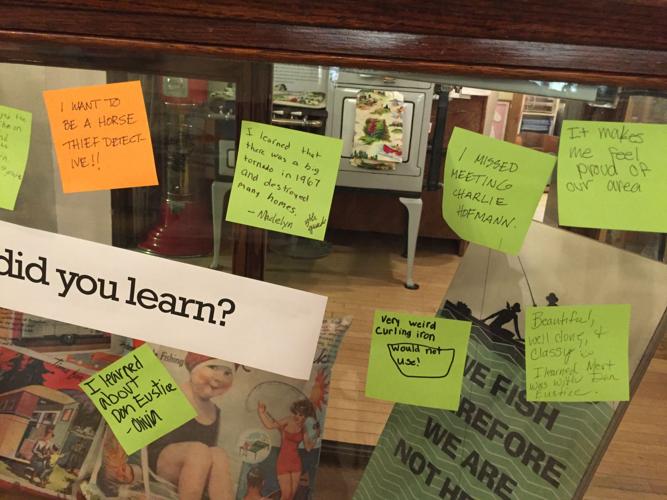 I WANT TO
BE A HORSE
THIEF DETECT-
IVE!!
I learned that
there was a big
tornado in 1967
and destroyed
many homes.
- Madelyn
I MISSED
MEETING
CHARLIE
HOFMANN.
It makes
me feel
proud of
our area
did you learn?
I learned
about
Don Eustice
- Olivia
Fishing
Very weird
Curling iron
Would not
use!
Beautiful,
well done, &
Classy
I learned Mert
was with Don
Eustice.
WE FISH
THEREFORE
WE ARE
NOT